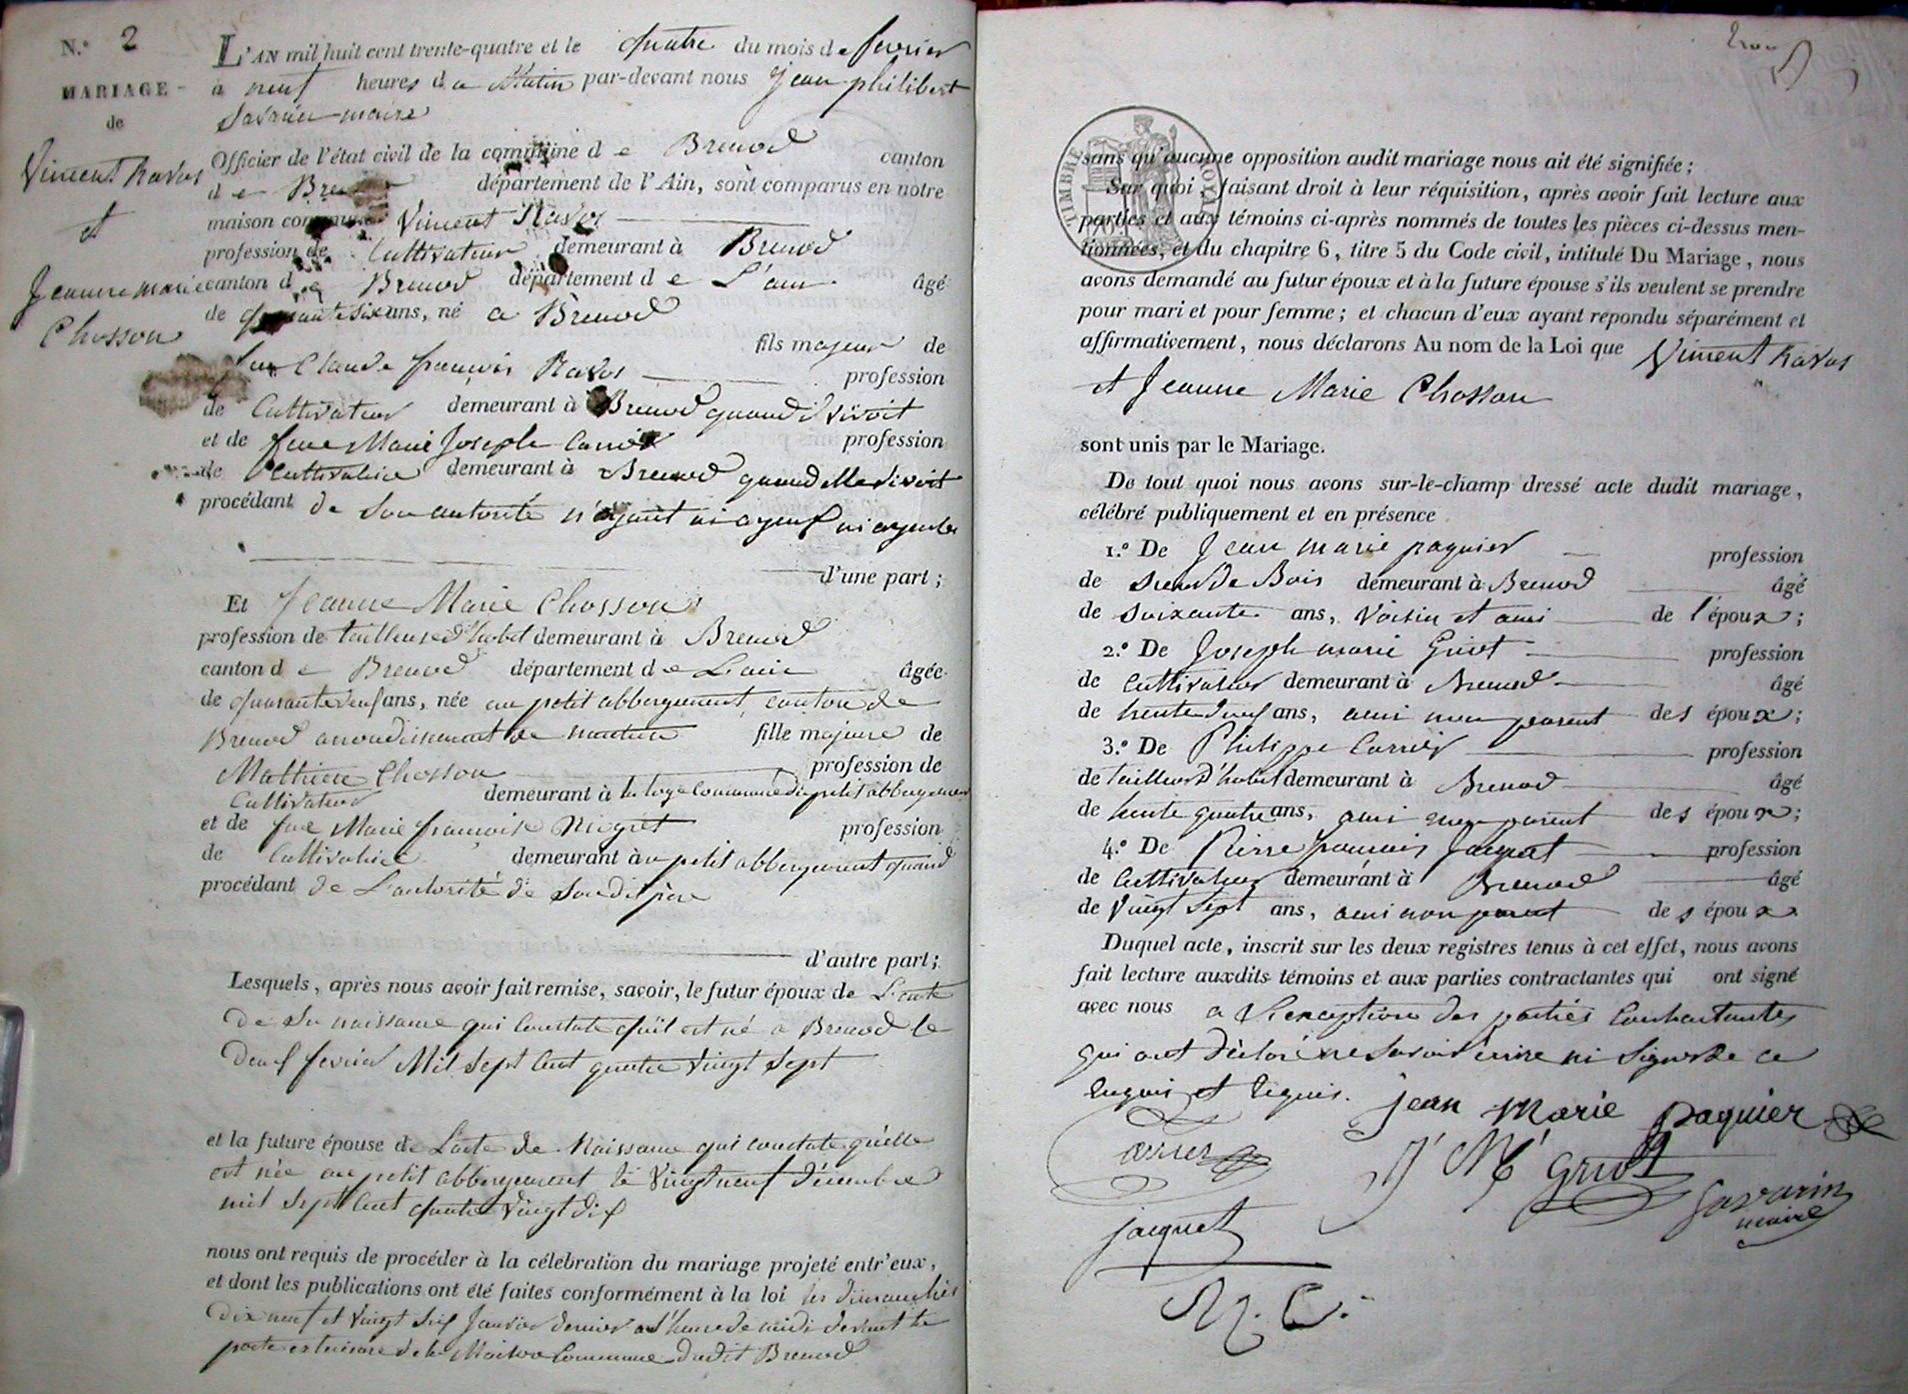 N.° 2
MARIAGE
de
Vincent Ravos
et
Jeanne marie
Chosson
L'AN mil huit cent trente-quatre et le quatre du mois de fevrier
a neuf heures du Matin par-devant nous Jean philibert
Savarin maire
Officier de l'état civil de la commune de Brenod canton
de département de l'Ain, sont comparus en notre
maison commune Vincent Ravos
profession de Cultivateur demeurant à Brenod
canton de Brenod département de L'ain âgé
de quarante six ans, né a Brenod
fils majeur de
feu Claude françois Ravos profession
de Cultivateur demeurant à Brenod quand il vivoit
et de feue Marie Joseph profession
de Cultivatrice demeurant à Brenod quand elle vivoit
procédant de Son autorité n'ayant ni ayeuf ni ayeules
d'une part ;
Et Jeanne Marie Chosson
profession de tailleuse d'habit demeurant à Brenod
canton de Brenod département de L'ain âgée
de ans, née au petit abbergement canton de
Brenod arrondissement de nantua fille majeure de
Mathieu Chosson profession de
Cultivateur demeurant à la loge Commune du petit abbergement
et de feue Marie françoise profession
de Cultivatrice demeurant à u petit abbergement quand
procédant de L'autorité de Son dit père
d'autre part ;
Lesquels, après nous avoir fait remise, savoir, le futur époux de L'acte
de Sa naissance qui Constate qu'il est né a Brenod le
fevrier Mil Sept Cent quatre vingt Sept
et la future épouse de L'acte de Naissance qui constate qu'elle
est née au petit abbergement le Vingt neuf décembre
mil Sept Cent quatre vingt dix
nous ont requis de procéder à la célébration du mariage projeté entr'eux,
et dont les publications ont été faites conformément à la loi les dimanches
dix neuf et vingt six Janvier dernier a L'heure de midi devant la
porte exterieure de la Maison Commune dudit Brenod
TIMBRE ROYAL
sans qu'aucune opposition audit mariage nous ait été signifiée ;
Sur quoi, faisant droit à leur réquisition, après avoir fait lecture aux
parties et aux témoins ci-après nommés de toutes les pièces ci-dessus men-
tionnées, et du chapitre 6, titre 5 du Code civil, intitulé Du Mariage, nous
avons demandé au futur époux et à la future épouse s'ils veulent se prendre
pour mari et pour femme ; et chacun d'eux ayant repondu séparément et
affirmativement, nous déclarons Au nom de la Loi que Vincent Ravos
et Jeanne Marie Chosson
sont unis par le Mariage.
De tout quoi nous avons sur-le-champ dressé acte dudit mariage,
célébré publiquement et en présence
1.° De Jean marie paquier profession
de Bois demeurant à Brenod âgé
de soixante ans, Voisin et ami de l'époux ;
2.° De Joseph marie Grivot profession
de Cultivateur demeurant à Brenod âgé
de ans, ami non parent des époux ;
3.° De Philippe Carrier profession
de tailleur d'habit demeurant à Brenod âgé
de trente quatre ans, ami non parent des époux ;
4.° De Pierre françois Jacquet profession
de Cultivateur demeurant à Brenod âgé
de vingt Sept ans, ami non parent des époux
Duquel acte, inscrit sur les deux registres tenus à cet effet, nous avons
fait lecture auxdits témoins et aux parties contractantes qui ont signé
avec nous a L'exception des parties Contractantes
qui ont déclaré ne Savoir écrire ni Signer de ce
enquis et requis. jean marie paquier
J M grivot
Savarin
maire
jacquet